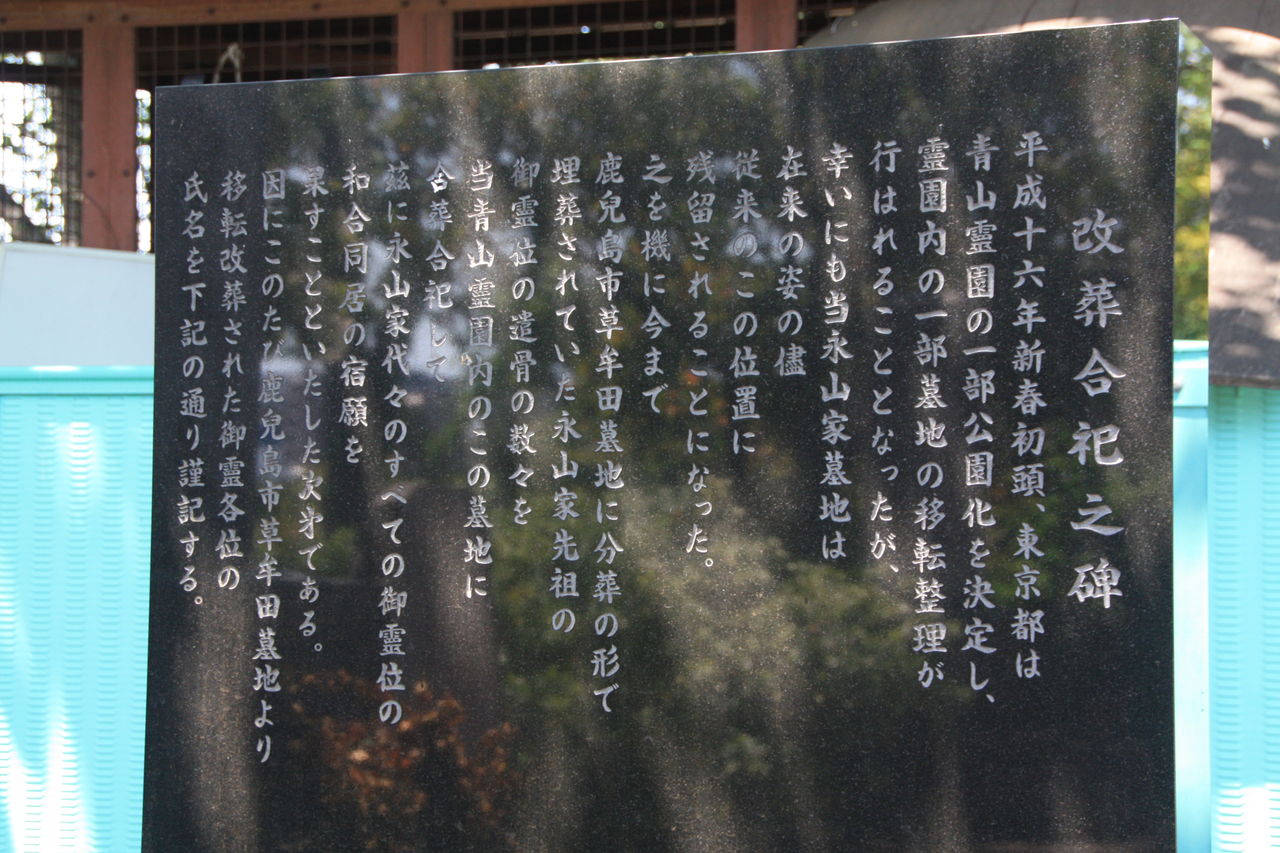 改葬合祀之碑
平成十六年新春初頭、東京都は
青山霊園の一部公園化を決定し、
霊園内の一部墓地の移転整理が
行はれることとなったが、
幸いにも当永山家墓地は
在来の姿の儘
従来のこの位置に
残留されることになった。
之を機に今まで
鹿兒島市草牟田墓地に分葬の形で
埋葬されていた永山家先祖の
御霊位の遺骨の数々を
当青山霊園内のこの墓地に
合葬合祀して
茲に永山家代々のすべての御霊位の
和合同居の宿願を
果すことといたした次㐧である。
因にこのたび鹿兒島市草牟田墓地より
移転改葬された御霊各位の
氏名を下記の通り謹記する。